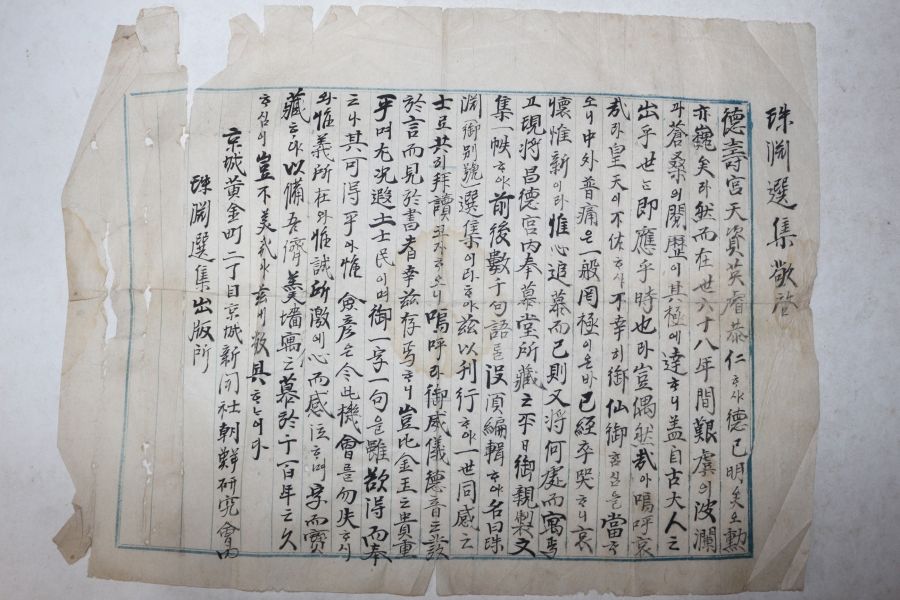 珠淵選集敬啓
德壽宮天資英睿恭仁ᄒᆞ샤德已明矣오勳
亦巍矣라然而在世六十八年間艱虞의波瀾
과蒼桑의閱歷이其極에達ᄒᆞ니盖自古大人之
出乎世는即應乎時也라豈偶然哉아嗚呼哀
哉라皇天이不佑ᄒᆞ샤不幸히御仙御ᄒᆞ심을當ᄒᆞ
오니中外普痛은一般罔極이온바已經卒哭ᄒᆞ니哀
懷惟新이라惟心追慕而已則又將何處而寓焉
고現將昌德宮內奉慕堂所藏之平日御親製文
集一帙ᄒᆞ야前後數千句語를沒湏編輯ᄒᆞ야名曰珠
淵(御別號)選集이라ᄒᆞ야茲以刊行ᄒᆞ야一世同感之
士로共히拜讀코자ᄒᆞ오니嗚呼라御威儀德音之發
於言而見於書者幸茲存焉ᄒᆞ니豈比金玉之貴重
乎며尤況遐土士民이며御一字一句을雖欲得而奉
之나其可得乎아惟 僉彦은今此機會를勿失ᄒᆞ시
와惟義所在와惟誠所激에心而感泣ᄒᆞ며字而寶
藏ᄒᆞ야以備吾儕羹墻寓之慕於千百年之久
ᄒᆞ심이豈不美哉아茲에敬具ᄒᆞᄂᆞ이다
京城黃金町二丁目京城新聞社朝鮮硏究會內
珠淵選集出版所